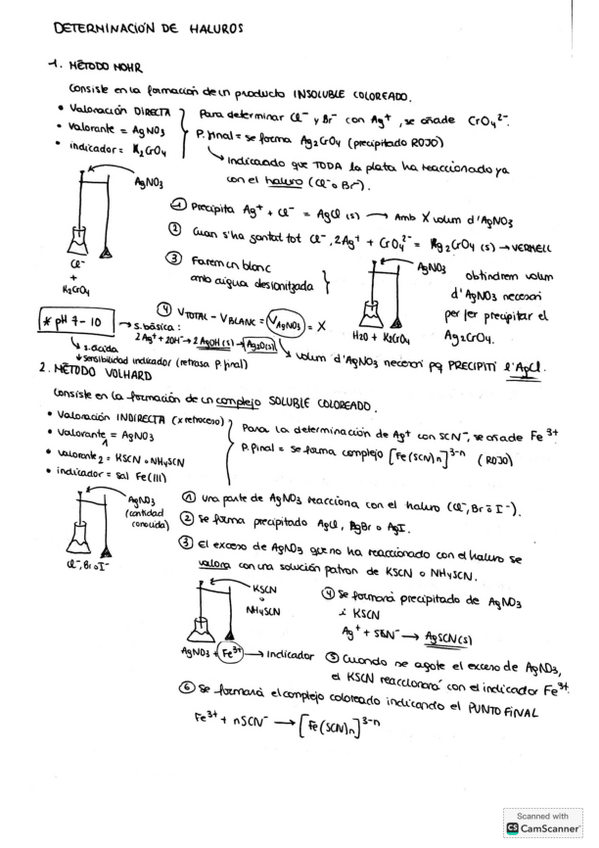 DETERMINACIÓN DE HALUROS
1. MÉTODO MOHR
Consiste en la formación de un producto INSOLUBLE COLOREADO.
• Valoración DIRECTA
• Valorante = AgNO3
• indicador = K2CrO4
Para determinar Cl⁻ y Br⁻ con Ag⁺, se añade CrO4²⁻.
P. final = se forma Ag2CrO4 (precipitado ROJO)
↳ Indicando que TODA la plata ha reaccionado ya
con el haluro (Cl⁻ o Br⁻).
AgNO3
Cl⁻
+
K2CrO4
① Precipita Ag⁺ + Cl⁻ = AgCl (s) → Amb X volum d'AgNO3
② Quan s'ha gastat tot Cl⁻, 2Ag⁺ + CrO4²⁻ = Ag2CrO4 (s) → VERMELL
③ Farem un blanc
amb aigua desionitzada
AgNO3
H2O + K2CrO4
obtindrem volum
d'AgNO3 necesari
per fer precipitar el
Ag2CrO4.
④ VTOTAL - VBLANC = VAgNO3 = X
↳ volum d'AgNO3 necesari pq PRECIPITI l'AgCl.
* pH 7 - 10
→ s. básica:
2Ag⁺ + 2OH⁻ → 2AgOH (s) → Ag2O(s)
↳ s. ácida
↓ sensibilidad indicador (retrasa P. final)
2. MÉTODO VOLHARD
Consiste en la formación de un complejo SOLUBLE COLOREADO.
• Valoración INDIRECTA (x retroceso)
• Valorante 1 = AgNO3
• Valorante 2 = KSCN o NH4SCN
• indicador = sal Fe(III)
Para la determinación de Ag⁺ con SCN⁻, se añade Fe³⁺
P. final = se forma complejo [Fe(SCN)n]³⁻ⁿ (ROJO)
AgNO3
(cantidad
conocida)
Cl⁻, Br o I⁻
① Una parte de AgNO3 reacciona con el haluro (Cl⁻, Br o I⁻).
② Se forma precipitado AgCl, AgBr o AgI.
③ El exceso de AgNO3 que no ha reaccionado con el haluro se
valora con una solución patron de KSCN o NH4SCN.
KSCN
o
NH4SCN
AgNO3 + Fe³⁺ → Indicador
④ Se formará precipitado de AgNO3
i KSCN
Ag⁺ + SCN⁻ → AgSCN(s)
⑤ Cuando se agote el exceso de AgNO3,
el KSCN reaccionará con el indicador Fe³⁺.
⑥ Se formará el complejo coloreado indicando el PUNTO FINAL
Fe³⁺ + nSCN⁻ → [Fe(SCN)n]³⁻ⁿ
Scanned with
CS CamScanner